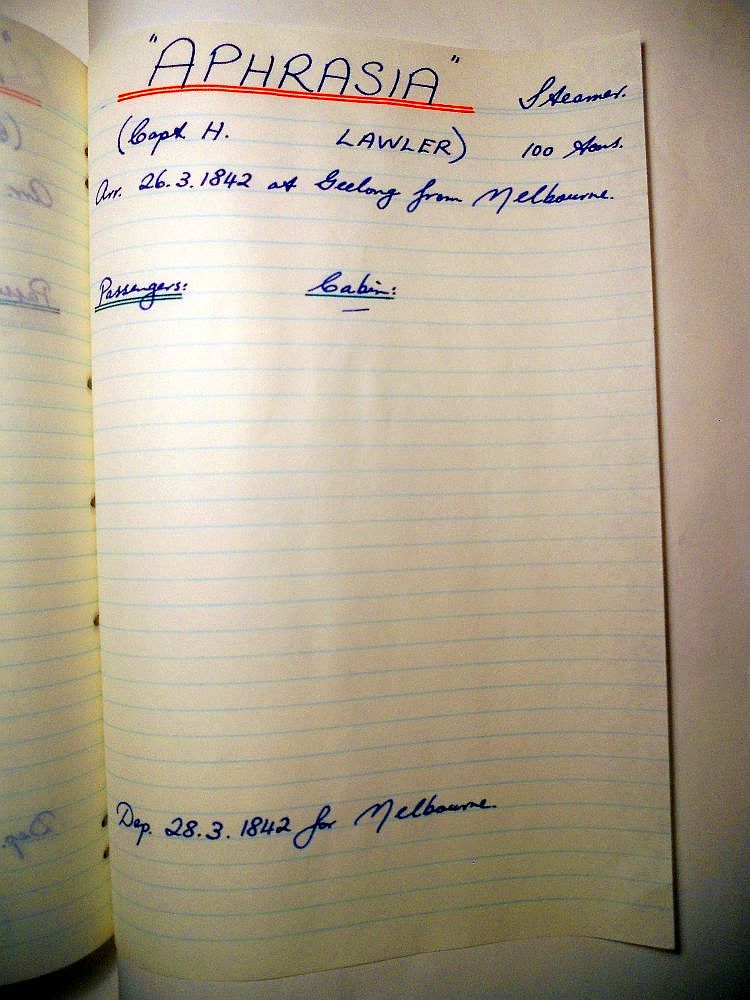 "APHRASIA" Steamer.
(Capt H. LAWLER) 100 tons.
Arr. 26.3.1842 at Geelong from Melbourne.
Passengers: Cabin:
—
Dep. 28.3.1842 for Melbourne.